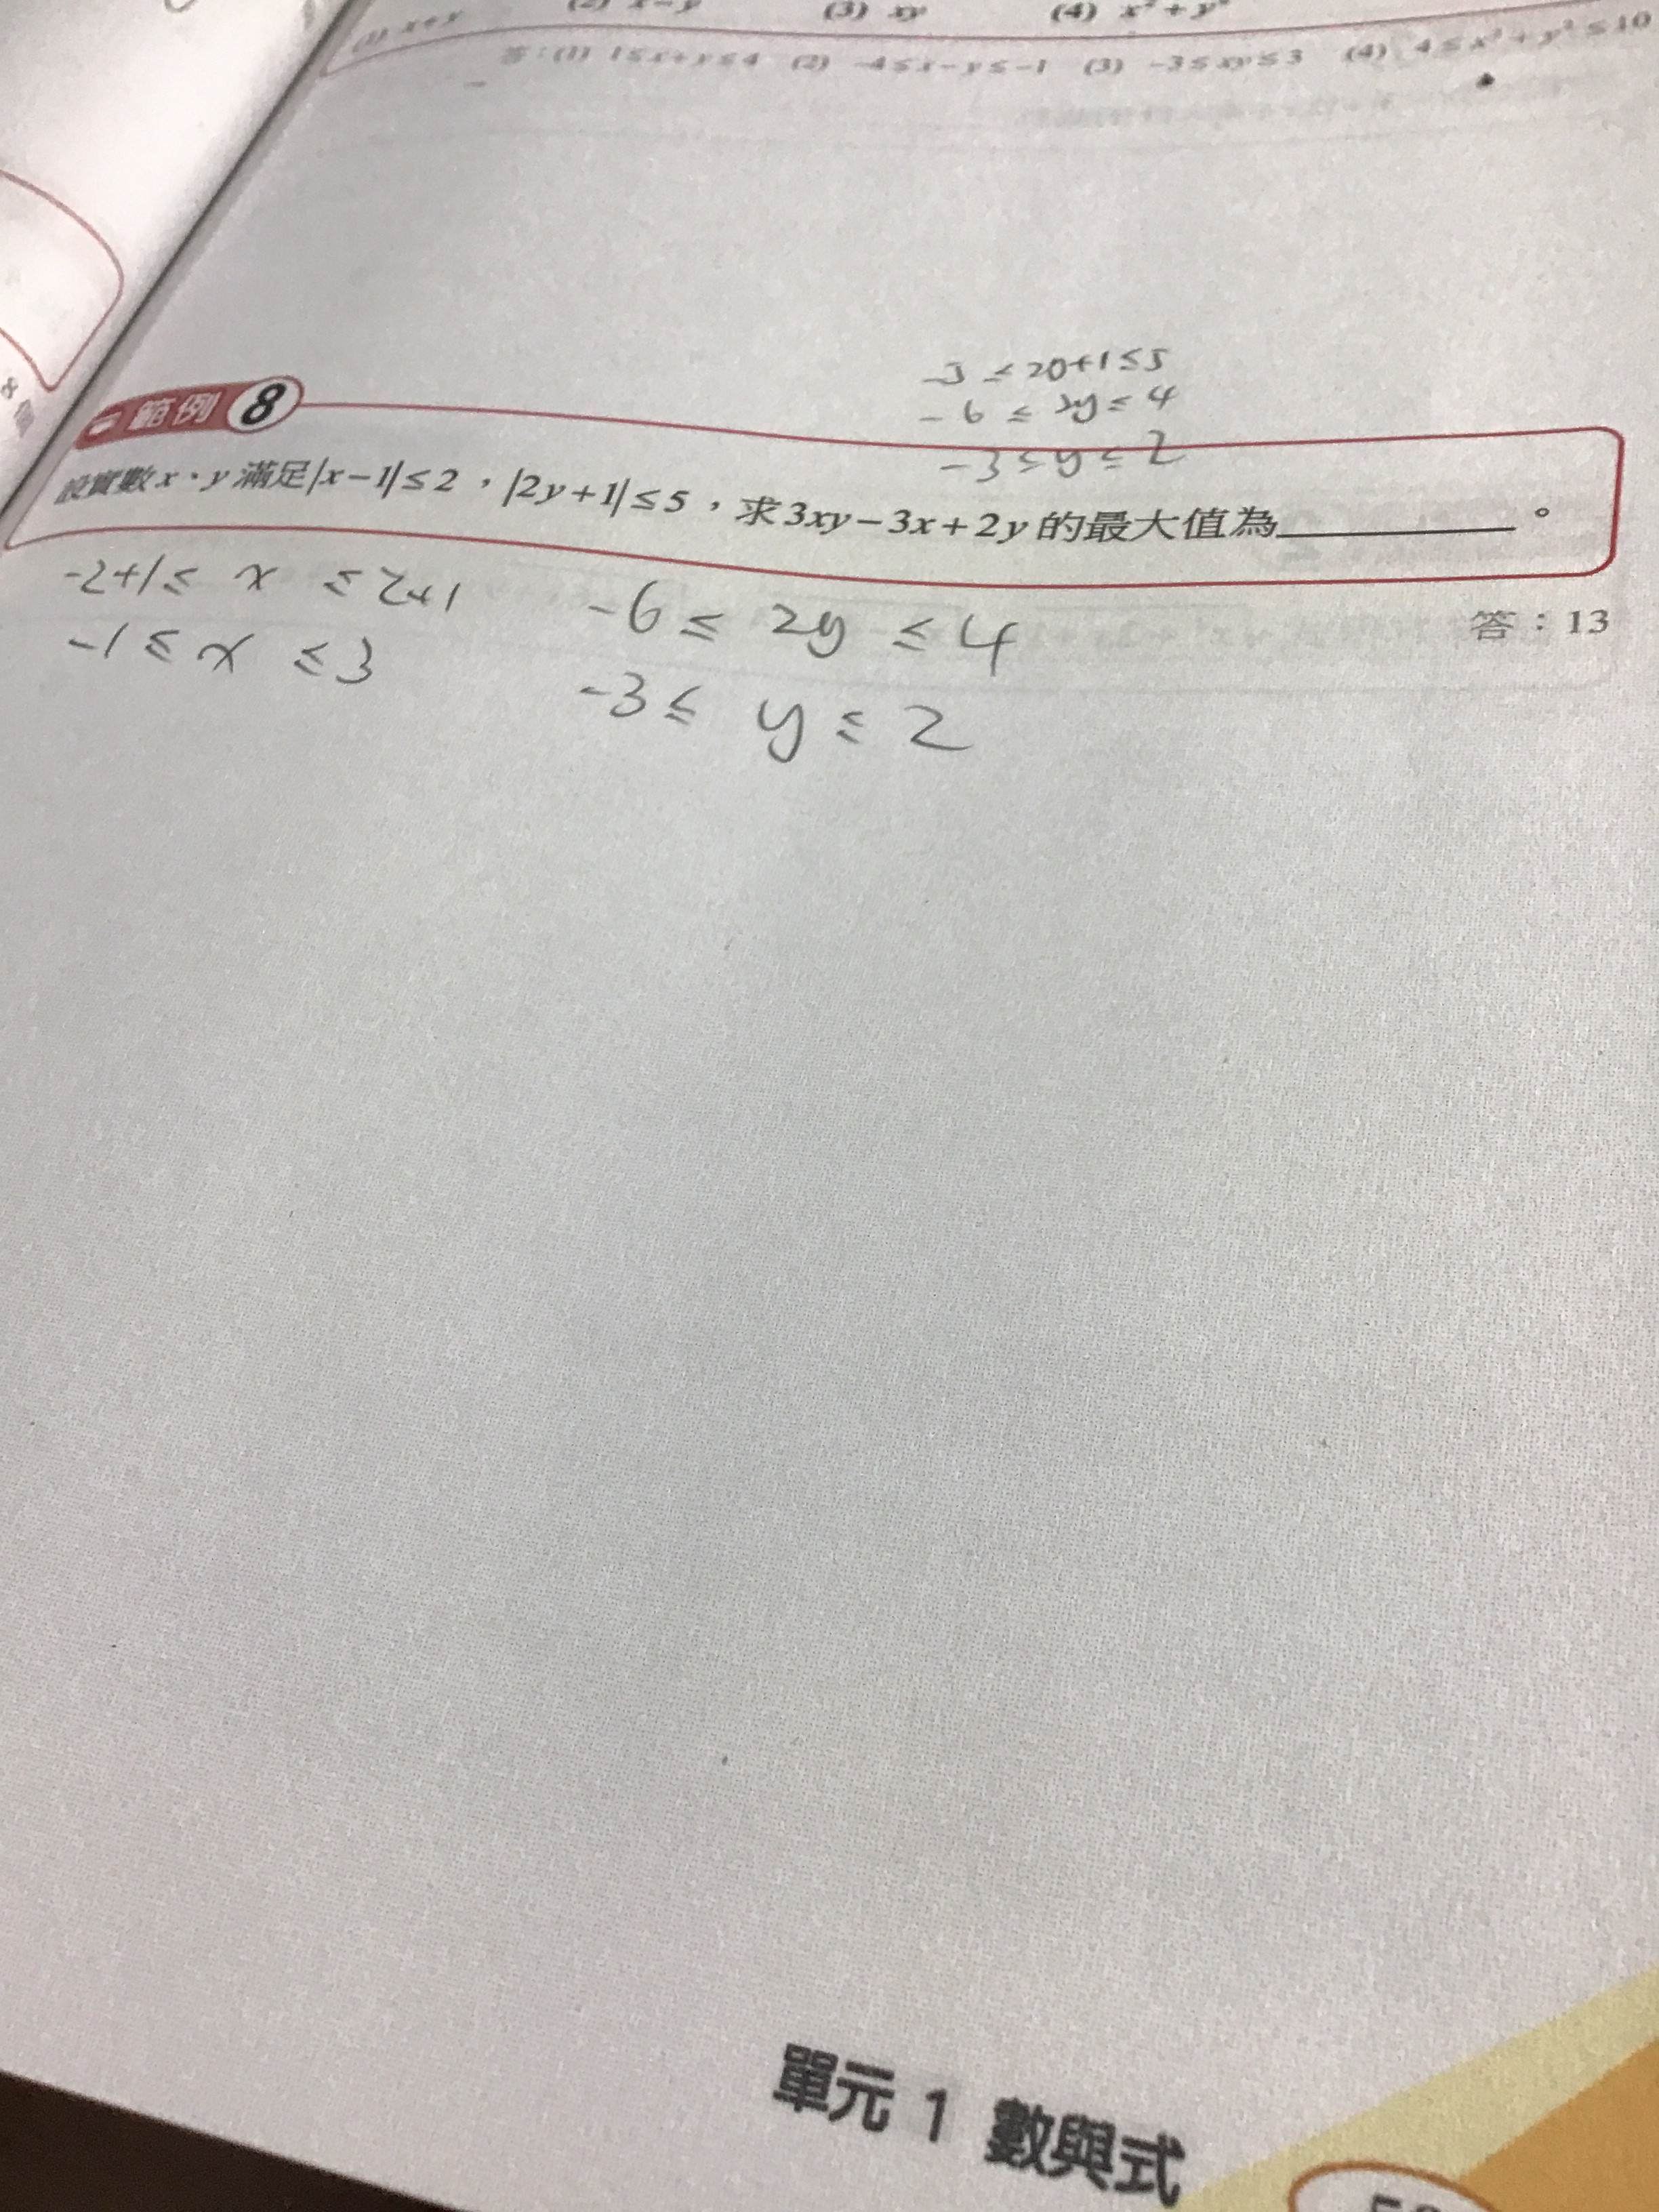 (1) x+y (2) x−y (3) xy (4) x²+y²
答：(1) 1≤x+y≤4 (2) −4≤x−y≤−1 (3) −3≤xy≤3 (4) 4≤x²+y²≤10
-5≤20+1≤5
-6≤2y≤4
-3≤y≤2
範例 8
設實數x、y滿足|x−1|≤2，|2y+1|≤5，求3xy−3x+2y的最大值為________。
答：13
-2+1≤ x ≤2+1
-1≤ x ≤3
-6≤ 2y ≤4
-3≤ y ≤2
單元 1 數與式